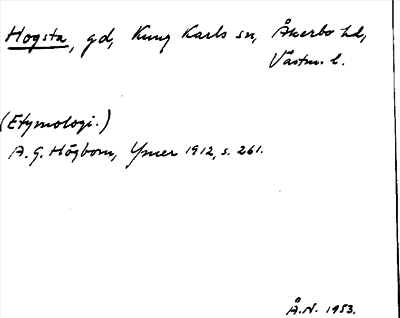 Hogsta, gd, Kung Karls sn, Åkerbo hd,
Västm. l.
(Etymologi.)
A. G. Högbom, Ymer 1912, s. 261.
Å. N. 1953.